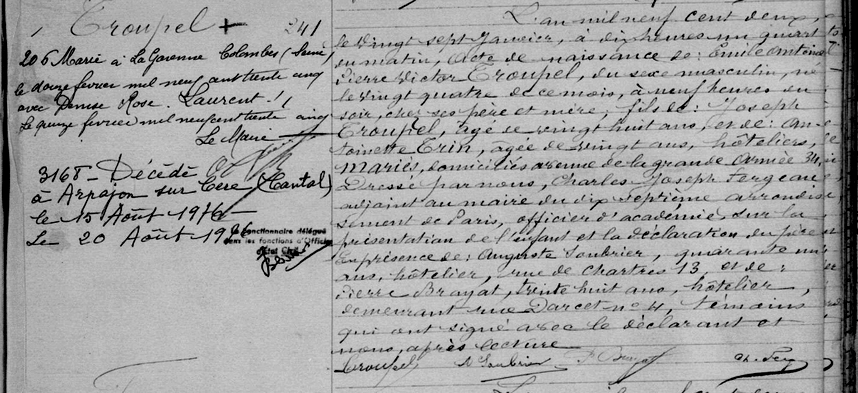 Troupel + 241
206 Marié à La Garenne Colombes (Seine)
le douze fevrier mil neuf cent trente cinq
avec Denise Rose Laurent ./.
Le quinze fevrier mil neuf cent trente cinq
Le Maire
3168 - Décédé
à Arpajon sur Cère (Cantal)
le 15 Août 1976
Le 20 Août 1976
Le Fonctionnaire délégué
dans les fonctions d'Officier
d'Etat Civil
L'an mil neuf cent deux,
le vingt sept Janvier, à dix heures un quart
du matin, Acte de naissance de: Emile Antoine
Pierre Victor Troupel, du sexe masculin, né
le vingt quatre de ce mois, à neuf heures du
soir, chez ses père et mère, fils de: Joseph
Troupel, âgé de vingt huit ans, et de: An
toinette Trin, agée de vingt ans, hôteliers,
Mariés, domiciliés avenue de la grande Armée 34.
Dressé par nous, Charles Joseph
adjoint au maire du dix septième arrondis
sement de Paris, officier d'académie, sur la
présentation de l'enfant et la déclaration du père
en présence de: Auguste Soubrier, quarante un
ans, hôtelier, rue de Chartres 13, et de:
Pierre Brayat, trente huit ans, hôtelier,
demeurant rue Darcet n° 4, témoins
qui ont signé avec le déclarant et
nous, après lecture
Troupel A Soubrier P Brayat